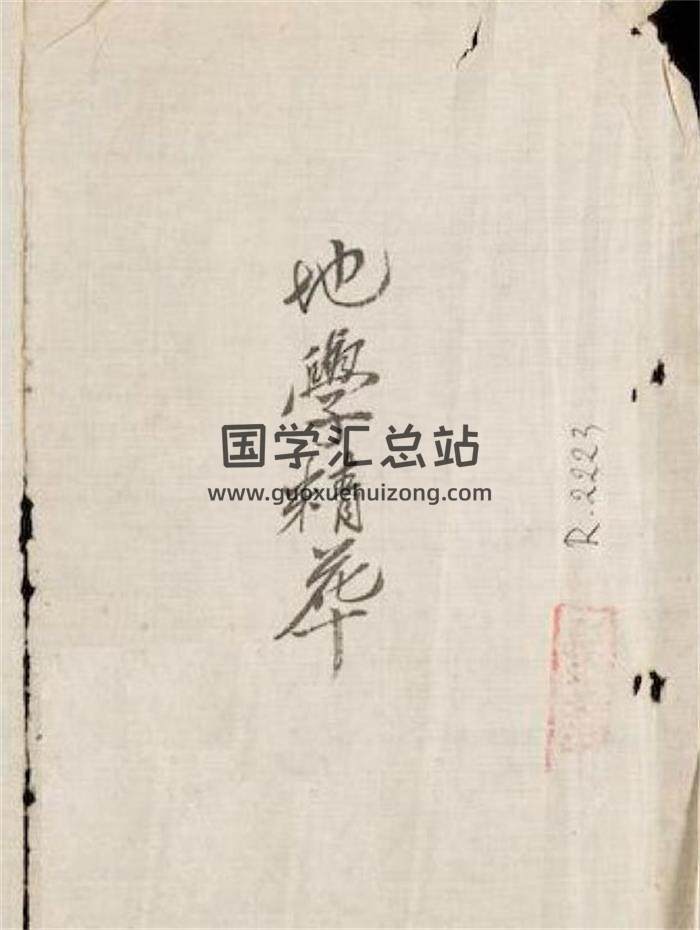 地學精華
国学汇总站
www.guoxuehuizong.com
R.2223